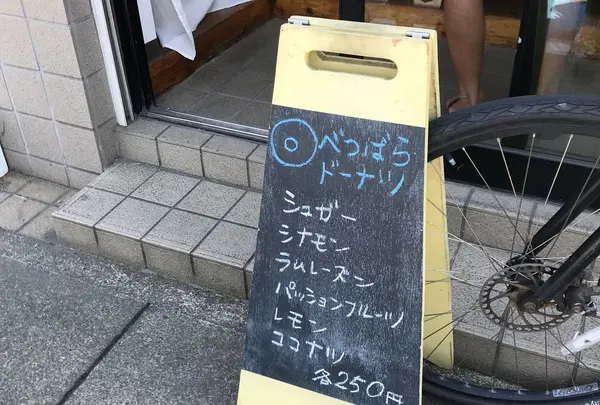 べつばら
ドーナツ
シュガー
シナモン
ラムレーズン
パッションフルーツ
レモン
ココナツ
各250円